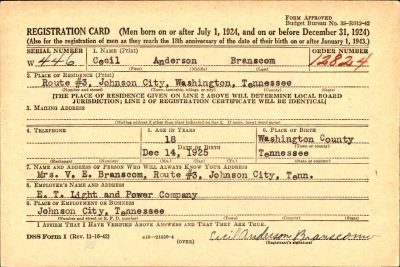 Form Approved
Budget Bureau No. 33-R012-42
REGISTRATION CARD (Men born on or after July 1, 1924, and on or before December 31, 1924)
(Also for the registration of men as they reach the 18th anniversary of the date of their birth on or after January 1, 1943.)
SERIAL NUMBER 1. NAME (Print) ORDER NUMBER
W. 446 Cecil Anderson Branscom 12824
(First) (Middle) (Last)
2. PLACE OF RESIDENCE (Print)
Route #3, Johnson City, Washington, Tennessee
(Number and street) (Town, township, village, or city) (County) (State)
[THE PLACE OF RESIDENCE GIVEN ON LINE 2 ABOVE WILL DETERMINE LOCAL BOARD
JURISDICTION; LINE 2 OF REGISTRATION CERTIFICATE WILL BE IDENTICAL]
3. MAILING ADDRESS
[Mailing address if other than place indicated on line 2. If same, insert word same]
4. TELEPHONE 5. AGE IN YEARS 6. PLACE OF BIRTH
18 Washington County
DATE OF BIRTH (Town or county)
Dec 14, 1925 Tennessee
(Exchange) (Number) (Mo.) (Day) (Yr.) (State or country)
7. NAME AND ADDRESS OF PERSON WHO WILL ALWAYS KNOW YOUR ADDRESS
Mrs. V. E. Branscom, Route #3, Johnson City, Tenn.
8. EMPLOYER'S NAME AND ADDRESS
E. T. Light and Power Company
9. PLACE OF EMPLOYMENT OR BUSINESS
Johnson City, Tennessee
(Number and street or R. F. D. number) (Town) (County) (State)
I AFFIRM THAT I HAVE VERIFIED ABOVE ANSWERS AND THAT THEY ARE TRUE.
DSS Form 1 (Rev. 11-16-42) (OVER) Cecil Anderson Branscom
(Registrant's signature)